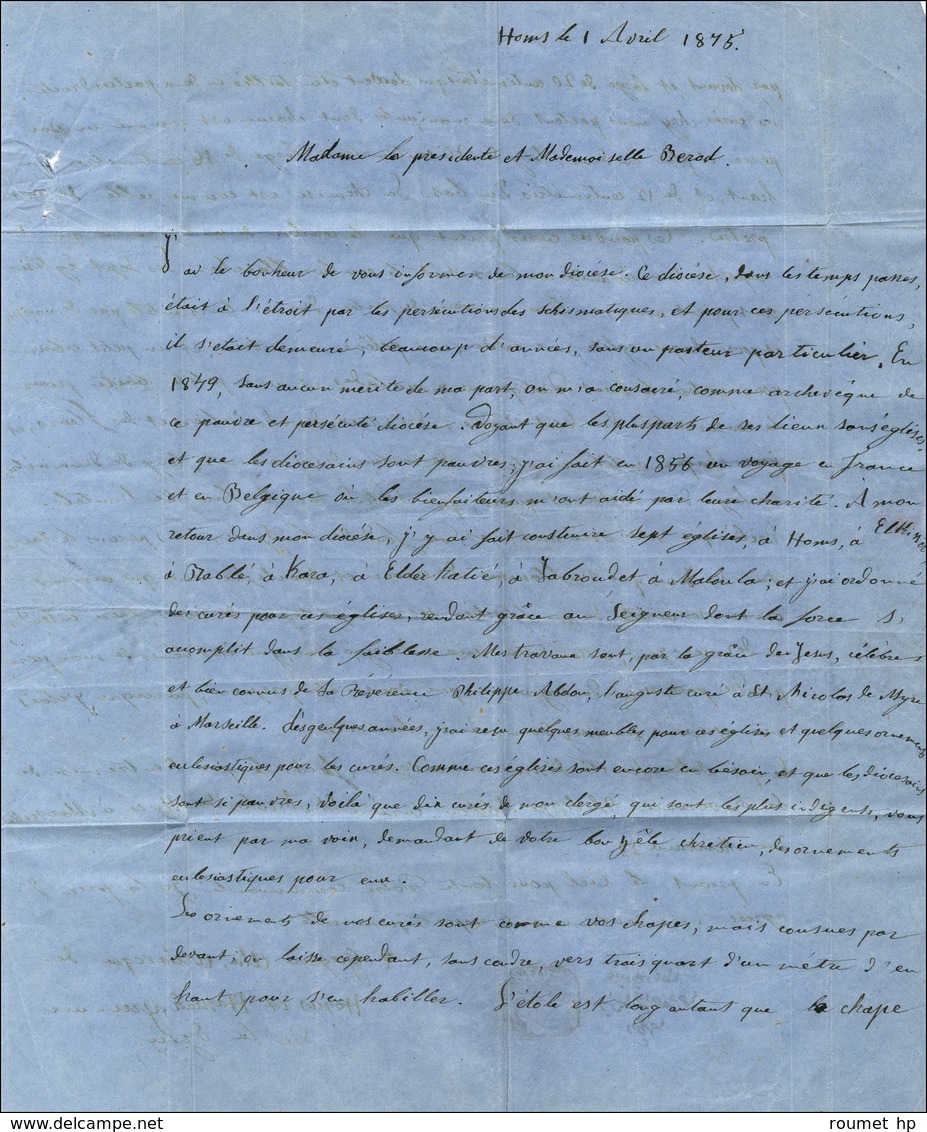 Homs le 1 Avril 1875.
Madame la présidente et Mademoiselle Berod.
J'ai le bonheur de vous informer de mon diocèse. Ce diocèse, dans les temps passés,
était à l'étroit par les persécutions des schismatiques, et pour ces persécutions,
il s'etait demeuré, beaucoup d'années, sans un pasteur particulier. En
1849, sans aucun mérite de ma part, on m'a consacré, comme archevêque de
ce pauvre et persécuté diocèse. Voyant que les plusparts de ses lieux sans églises
et que les diocesains sont pauvres; j'ai fait en 1856 un voyage en france
et en Belgique où les bienfaiteurs m'ont aidé par leure charité. À mon
retour dans mon diocèse, j'y ai fait construire sept églises, à Homs, à
à Rablé, à Kara, à Elder Katié, à Jabroudet, à Maloula; et j'ai ordonné
des curés pour ces églises, rendant grâce au Seigneur dont la force s'
accomplit dans la faiblesse. Mes travaux sont, par la grâce de Jesus, célèbres
et bien connus de Sa Révérence Philippe Abdou, l'auguste curé à St Nicolas de Myre
à Marseille. Dès quelques années, j'ai reçu quelques meubles pour ces églises et quelques ornements
eclesiastiques pour les curés. Comme ces églises sont encore en bésoin, et que les diocesains
sont si pauvres, voilà que dix curés de mon clergé, qui sont les plus indigents, vous
prient par ma voix, demandant de votre bon zêle chretien, des ornements
eclesiastiques pour eux.
Les ornements de nos curés sont comme vos chapes, mais cousues par
devant; on laisse cependant, sans coudre, vers trois quart d'un métre d'en
haut pour s'en habiller. L'étole est long autant que la chape
roumet hp